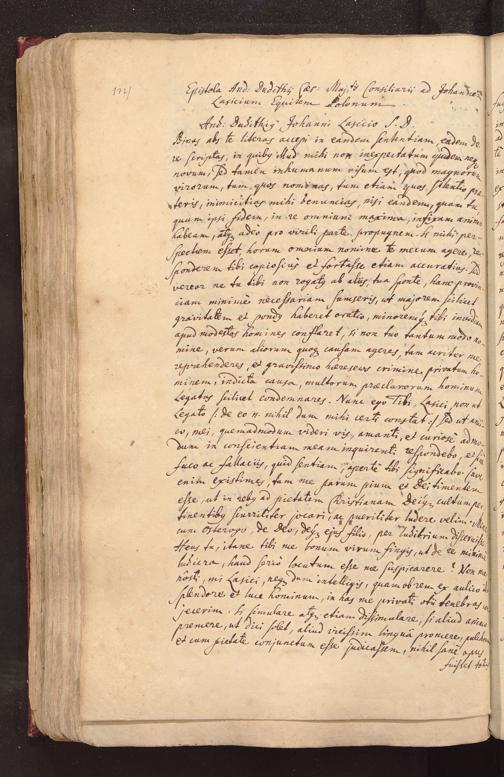 122/
Epistola And: Dudithij Cæs: Maj:tis Consiliarii ad Johannem
Lasicium Equitem Polonum
And: Dudithig Johanni Lasicio S. D.
Binas abs te literas accepi in eandem sententiam, eadem de
re scriptas, in quibg illud mihi non inexpectatum quidem neq
novum, sed tamen inhumanum visum est, quod magnorum
virorum, tum quos nominas, tum etiam quos silentio præ
teris, inimicitias mihi denuncias, nisi eandem, quam tu
quam ipsi fidem, in re omnium maxima, infixam animo
habeam, atq adeo pro virili parte propugnem. Si mihi per-
spectum esset, horum omnium nomine te mecum agere, re-
sponderem tibi copiosius et fortasse etiam accuratius. Sed
vereor ne tu tibi non rogatg ab aliis, tua sponte, hanc provin
ciam minime necessariam sumseris, ut majorem scilicet
gravitatem et pondg haberet oratio, minoremq tibi invidiam
apud modestos homines conflaret, si non tuo tantum modo no-
mine, verum aliorum quoq causam ageres, tam acriter me
reprehenderes, et gravissimo hæreseos crimine, privatum ho-
minem, indicta causa, multorum præclarorum hominum
Legatus scilicet condemnares. Nunc ego tibi, Lasici, non ut
Legato /: de eo n. nihil dum mihi certi constat :/ sed ut ami-
co, mei, quemadmodum videri vis, amanti, et curiose admo-
dum in conscientiam meam inquirenti respondebo, et sine
fuco ac fallaciis, quid sentiam, aperte tibi significabo. Cave
enim existimes, tam me parum pium et Dei timentem
esse, ut in rebg ad pietatem Christianam Deiq cultum per-
tinentibg scurriliter jocari, ac pueriliter ludere velim.
cum Osterogo, de Deo, deq ejus filio, per ludibrium disseruisse
Heus tu, itane tibi me bonum virum fingis, ut de re minime
ludicra, haud serio locutum esse me suspicarere? Non me
nosti, mi Lasici, neq dum intelligis, quamobrem ex aulico
splendore et luce hominum, in has me privati otii tenebras
jecerim. Si simulare atq etiam dissimulare, si aliud animo
premere, ut dici solet, aliud vicissim lingua promere, pulchrum
et cum pietate conjunctum esse judicassem, nihil sane opus
fuisset